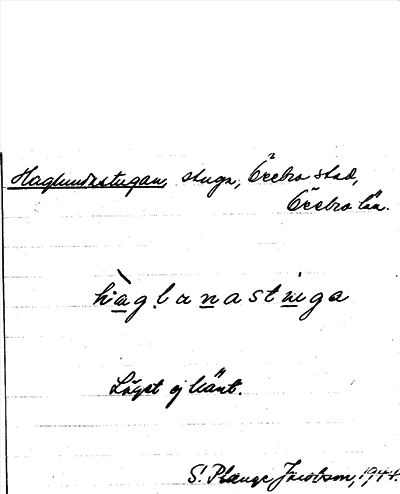 Haglundastugan, stuga, Örebro stad,
Örebro län.
hàglanastuga
Läget ej känt.
S. Plænge Jacobson, 1944.